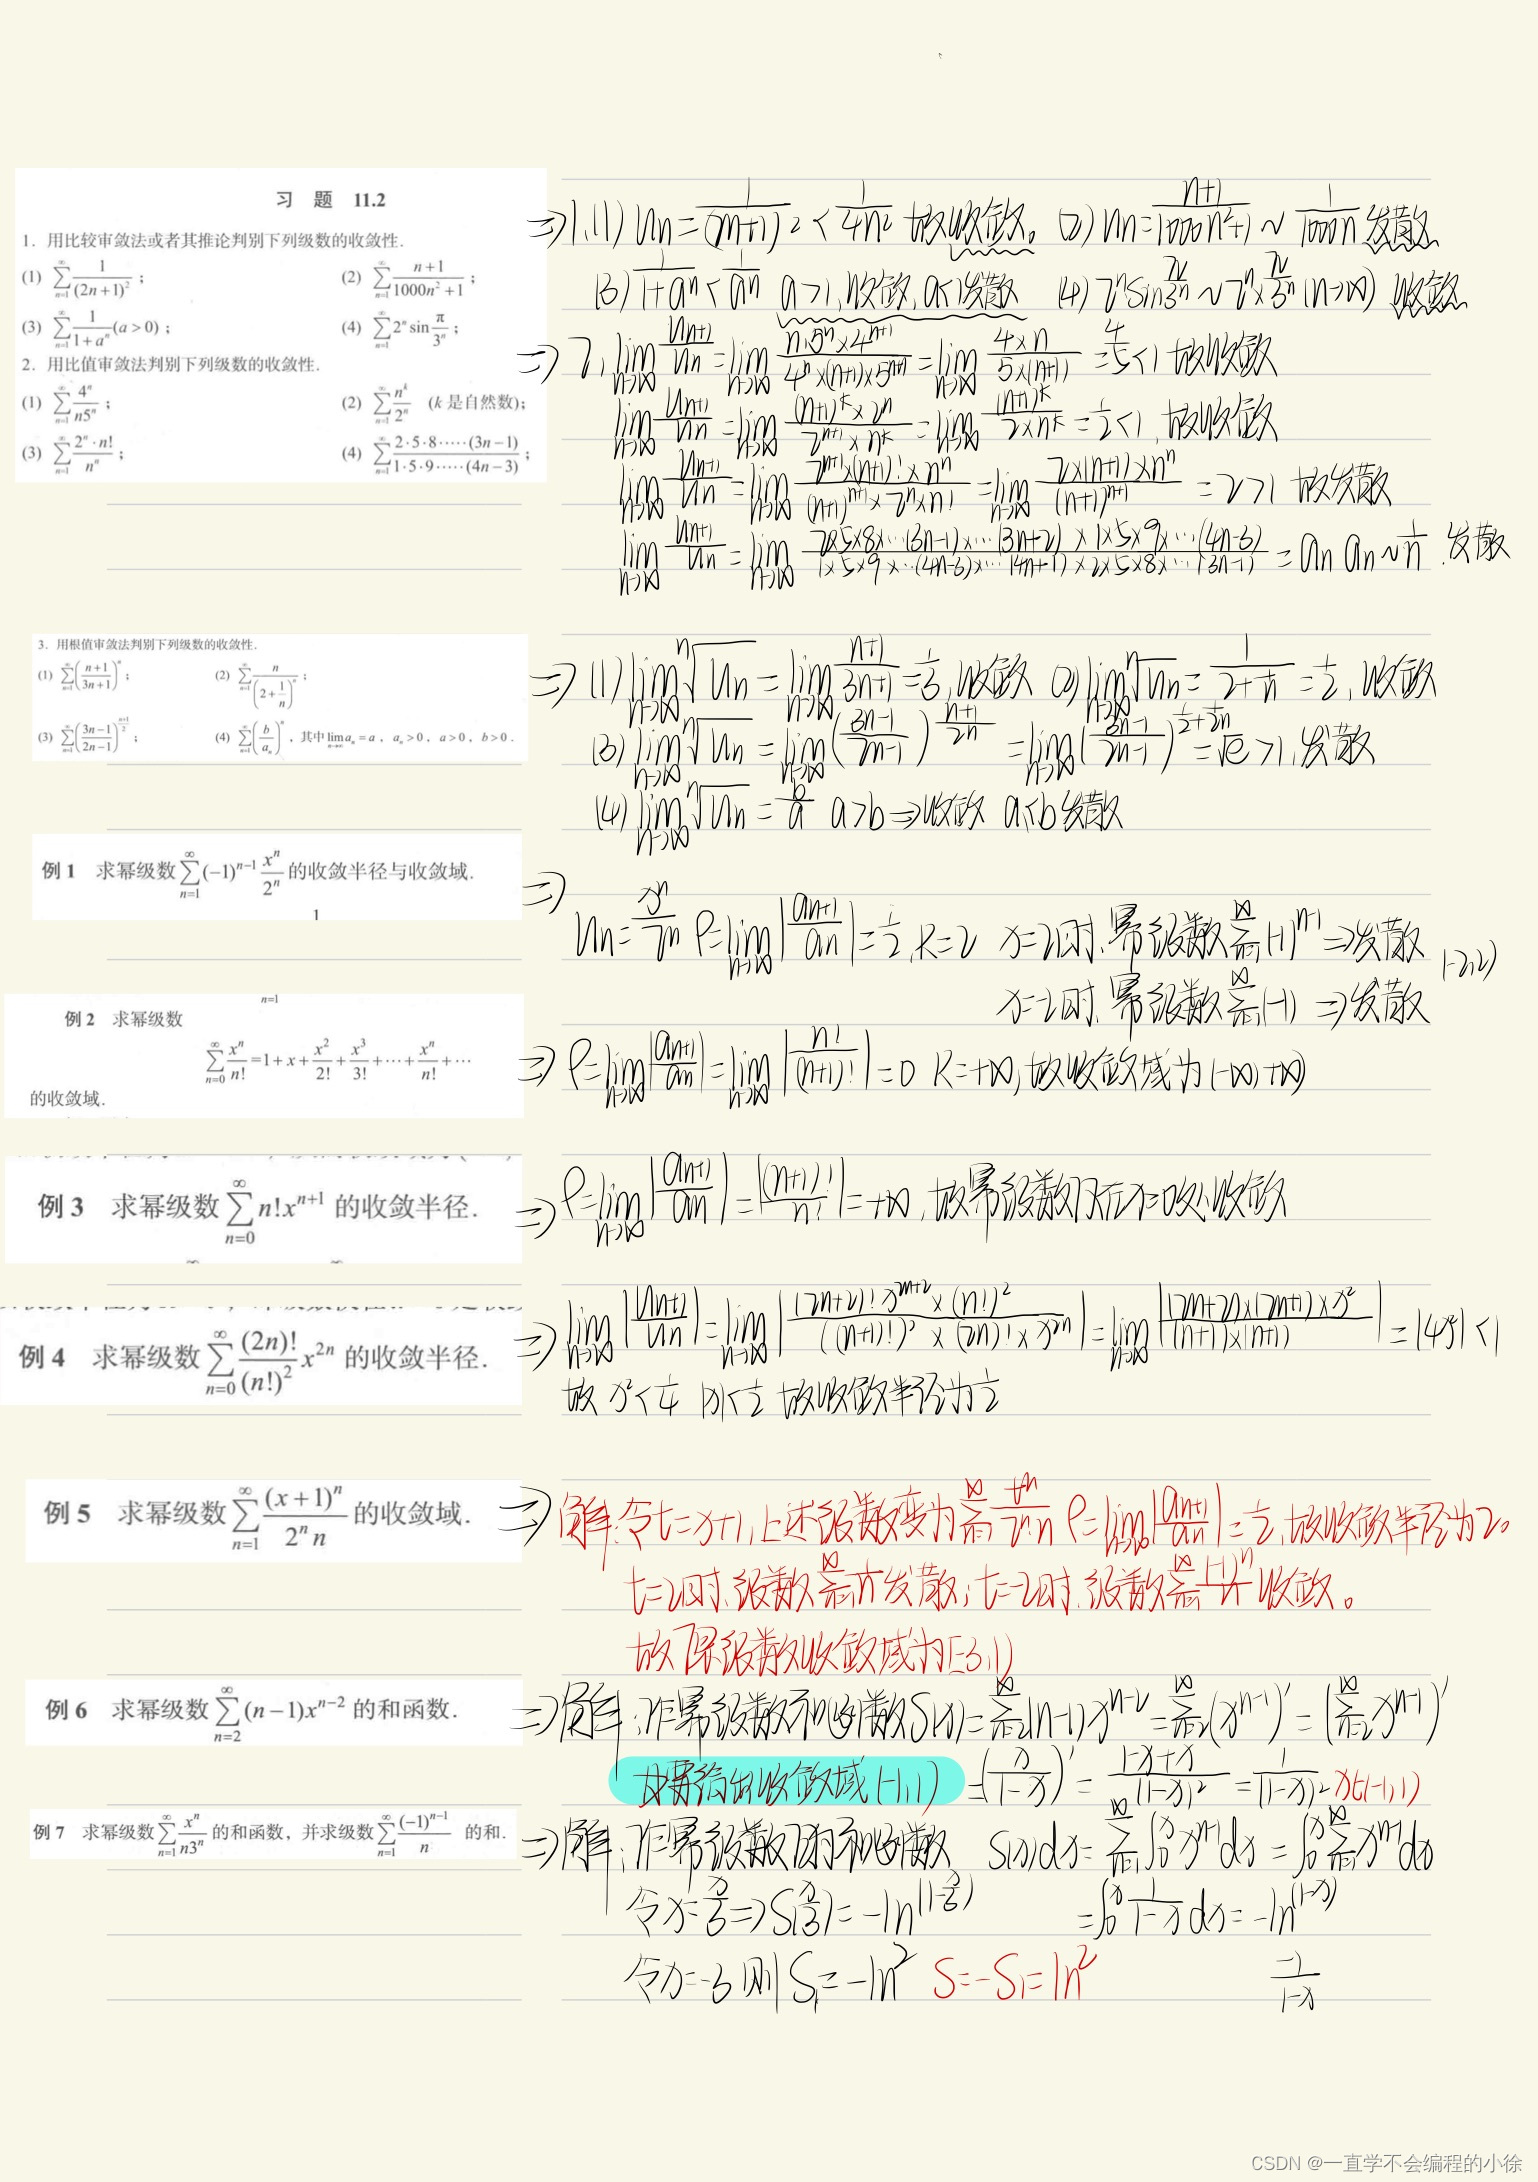 习 题 11.2
1. 用比较审敛法或者其推论判别下列级数的收敛性.
(1) $\sum_{n=1}^{\infty}\frac{1}{(2n+1)^2}$ ; (2) $\sum_{n=1}^{\infty}\frac{n+1}{1000n^2+1}$ ;
(3) $\sum_{n=1}^{\infty}\frac{1}{1+a^n}(a>0)$ ; (4) $\sum_{n=1}^{\infty}2^n\sin\frac{\pi}{3^n}$ ;
2. 用比值审敛法判别下列级数的收敛性.
(1) $\sum_{n=1}^{\infty}\frac{4^n}{n5^n}$ ; (2) $\sum_{n=1}^{\infty}\frac{n^k}{2^n}$ (k 是自然数);
(3) $\sum_{n=1}^{\infty}\frac{2^n\cdot n!}{n^n}$ ; (4) $\sum_{n=1}^{\infty}\frac{2\cdot5\cdot8\cdot\cdots\cdot(3n-1)}{1\cdot5\cdot9\cdot\cdots\cdot(4n-3)}$ ;
⇒1.(1) $u_n=\frac{1}{(2n+1)^2}<\frac{1}{4n^2}$ 故收敛。 (2) $u_n=\frac{n+1}{1000n^2+1}\sim\frac{1}{1000n}$ 发散
(3) $\frac{1}{1+a^n}<\frac{1}{a^n}$ a>1,收敛,a<1发散 (4) $2^n\sin\frac{\pi}{3^n}\sim2^n\times\frac{\pi}{3^n}(n\to\infty)$ 收敛
⇒2, $\lim_{n\to\infty}\frac{u_{n+1}}{u_n}=\lim_{n\to\infty}\frac{n\cdot5^n\times4^{n+1}}{4^n\times(n+1)\times5^{n+1}}=\lim_{n\to\infty}\frac{4\times n}{5\times(n+1)}=\frac{4}{5}<1$ 故收敛
$\lim_{n\to\infty}\frac{u_{n+1}}{u_n}=\lim_{n\to\infty}\frac{(n+1)^k\times2^n}{2^{n+1}\times n^k}=\lim_{n\to\infty}\frac{(n+1)^k}{2\times n^k}=\frac{1}{2}<1$,故收敛
$\lim_{n\to\infty}\frac{u_{n+1}}{u_n}=\lim_{n\to\infty}\frac{2^{n+1}\times(n+1)!\times n^n}{(n+1)^{n+1}\times2^n\times n!}=\lim_{n\to\infty}\frac{2\times(n+1)\times n^n}{(n+1)^{n+1}}=2>1$ 故发散
$\lim_{n\to\infty}\frac{u_{n+1}}{u_n}=\lim_{n\to\infty}\frac{2\times5\times8\times\cdots(3n-1)\times\cdots(3n+2)\times1\times5\times9\times\cdots(4n-3)}{1\times5\times9\times\cdots(4n-3)\times\cdots(4n+1)\times2\times5\times8\times\cdots(3n-1)}=a_n$ $a_n\sim\frac{1}{n}$.发散
3. 用根值审敛法判别下列级数的收敛性.
(1) $\sum_{n=1}^{\infty}\left(\frac{n+1}{3n+1}\right)^n$ ; (2) $\sum_{n=1}^{\infty}\frac{n}{\left(2+\frac{1}{n}\right)^n}$ ;
(3) $\sum_{n=1}^{\infty}\left(\frac{3n-1}{2n-1}\right)^{\frac{n+1}{2}}$ ; (4) $\sum_{n=1}^{\infty}\left(\frac{b}{a_n}\right)^n$, 其中$\lim_{n\to\infty}a_n=a$, $a_n>0$, a>0, b>0.
⇒(1) $\lim_{n\to\infty}\sqrt[n]{u_n}=\lim_{n\to\infty}\frac{n+1}{3n+1}=\frac{1}{3}$,收敛 (2) $\lim_{n\to\infty}\sqrt[n]{u_n}=\frac{1}{2+\frac{1}{n}}=\frac{1}{2}$,收敛
(3) $\lim_{n\to\infty}\sqrt[n]{u_n}=\lim_{n\to\infty}\left(\frac{3n-1}{2n-1}\right)^{\frac{n+1}{2n}}=\lim_{n\to\infty}\left(\frac{3n-1}{2n-1}\right)^{\frac{1}{2}+\frac{1}{2n}}=\sqrt{e}>1$,发散
(4) $\lim_{n\to\infty}\sqrt[n]{u_n}=\frac{b}{a}$ a>b⇒收敛 a<b发散
例 1 求幂级数$\sum_{n=1}^{\infty}(-1)^{n-1}\frac{x^n}{2^n}$的收敛半径与收敛域.
1
⇒ $u_n=\frac{x^n}{2^n}$ $\rho=\lim_{n\to\infty}\left|\frac{a_{n+1}}{a_n}\right|=\frac{1}{2}$,R=2 x=2时,幂级数$\sum_{n=1}^{\infty}(-1)^{n-1}$⇒发散 (-2,2)
x=-2时,幂级数$\sum_{n=1}^{\infty}(-1)$ ⇒发散
n=1
例 2 求幂级数
$\sum_{n=0}^{\infty}\frac{x^n}{n!}=1+x+\frac{x^2}{2!}+\frac{x^3}{3!}+\cdots+\frac{x^n}{n!}+\cdots$
的收敛域.
⇒ $\rho=\lim_{n\to\infty}\left|\frac{a_{n+1}}{a_n}\right|=\lim_{n\to\infty}\left|\frac{n!}{(n+1)!}\right|=0$ R=+∞,故收敛域为(-∞,+∞)
例 3 求幂级数$\sum_{n=0}^{\infty}n!x^{n+1}$的收敛半径.
⇒ $\rho=\lim_{n\to\infty}\left|\frac{a_{n+1}}{a_n}\right|=\left|\frac{(n+1)!}{n!}\right|=+\infty$,故幂级数只在x=0处收敛
例 4 求幂级数$\sum_{n=0}^{\infty}\frac{(2n)!}{(n!)^2}x^{2n}$的收敛半径.
⇒ $\lim_{n\to\infty}\left|\frac{u_{n+1}}{u_n}\right|=\lim_{n\to\infty}\left|\frac{(2n+2)!x^{2n+2}\times(n!)^2}{((n+1)!)^2\times(2n)!\times x^{2n}}\right|=\lim_{n\to\infty}\left|\frac{(2n+2)\times(2n+1)\times x^2}{(n+1)\times(n+1)}\right|=|4x^2|<1$
故 $x^2<\frac{1}{4}$ $|x|<\frac{1}{2}$ 故收敛半径为$\frac{1}{2}$
例 5 求幂级数$\sum_{n=1}^{\infty}\frac{(x+1)^n}{2^n n}$的收敛域.
⇒解:令t=x+1,上述级数变为$\sum_{n=1}^{\infty}\frac{t^n}{2^n\cdot n}$ $\rho=\lim_{n\to\infty}\left|\frac{a_{n+1}}{a_n}\right|=\frac{1}{2}$,故收敛半径为2。
t=2时,级数$\sum_{n=1}^{\infty}\frac{1}{n}$发散;t=-2时,级数$\sum_{n=1}^{\infty}\frac{(-1)^n}{n}$收敛。
故原级数收敛域为[-3,1)
例 6 求幂级数$\sum_{n=2}^{\infty}(n-1)x^{n-2}$的和函数.
⇒解:作幂级数和函数$S(x)=\sum_{n=2}^{\infty}(n-1)x^{n-2}=\sum_{n=2}^{\infty}(x^{n-1})'=\left(\sum_{n=2}^{\infty}x^{n-1}\right)'$
要给出收敛域(-1,1) $=\left(\frac{x}{1-x}\right)'=\frac{1-x+x}{(1-x)^2}=\frac{1}{(1-x)^2}$ x∈(-1,1)
例 7 求幂级数$\sum_{n=1}^{\infty}\frac{x^n}{n3^n}$的和函数, 并求级数$\sum_{n=1}^{\infty}\frac{(-1)^{n-1}}{n}$的和.
⇒解:作幂级数的和函数 $S(x)dx=\sum_{n=1}^{\infty}\int_0^x x^{n-1}dx=\int_0^x\sum_{n=1}^{\infty}x^{n-1}dx$
令$x=\frac{x}{3}$⇒$S(\frac{x}{3})=-\ln(1-\frac{x}{3})$ $=\int_0^x\frac{1}{1-x}dx=-\ln(1-x)$
令x=-3则$S_1=-\ln2$ $S=-S_1=\ln2$ $\frac{-1}{1-x}$
CSDN @一直学不会编程的小徐